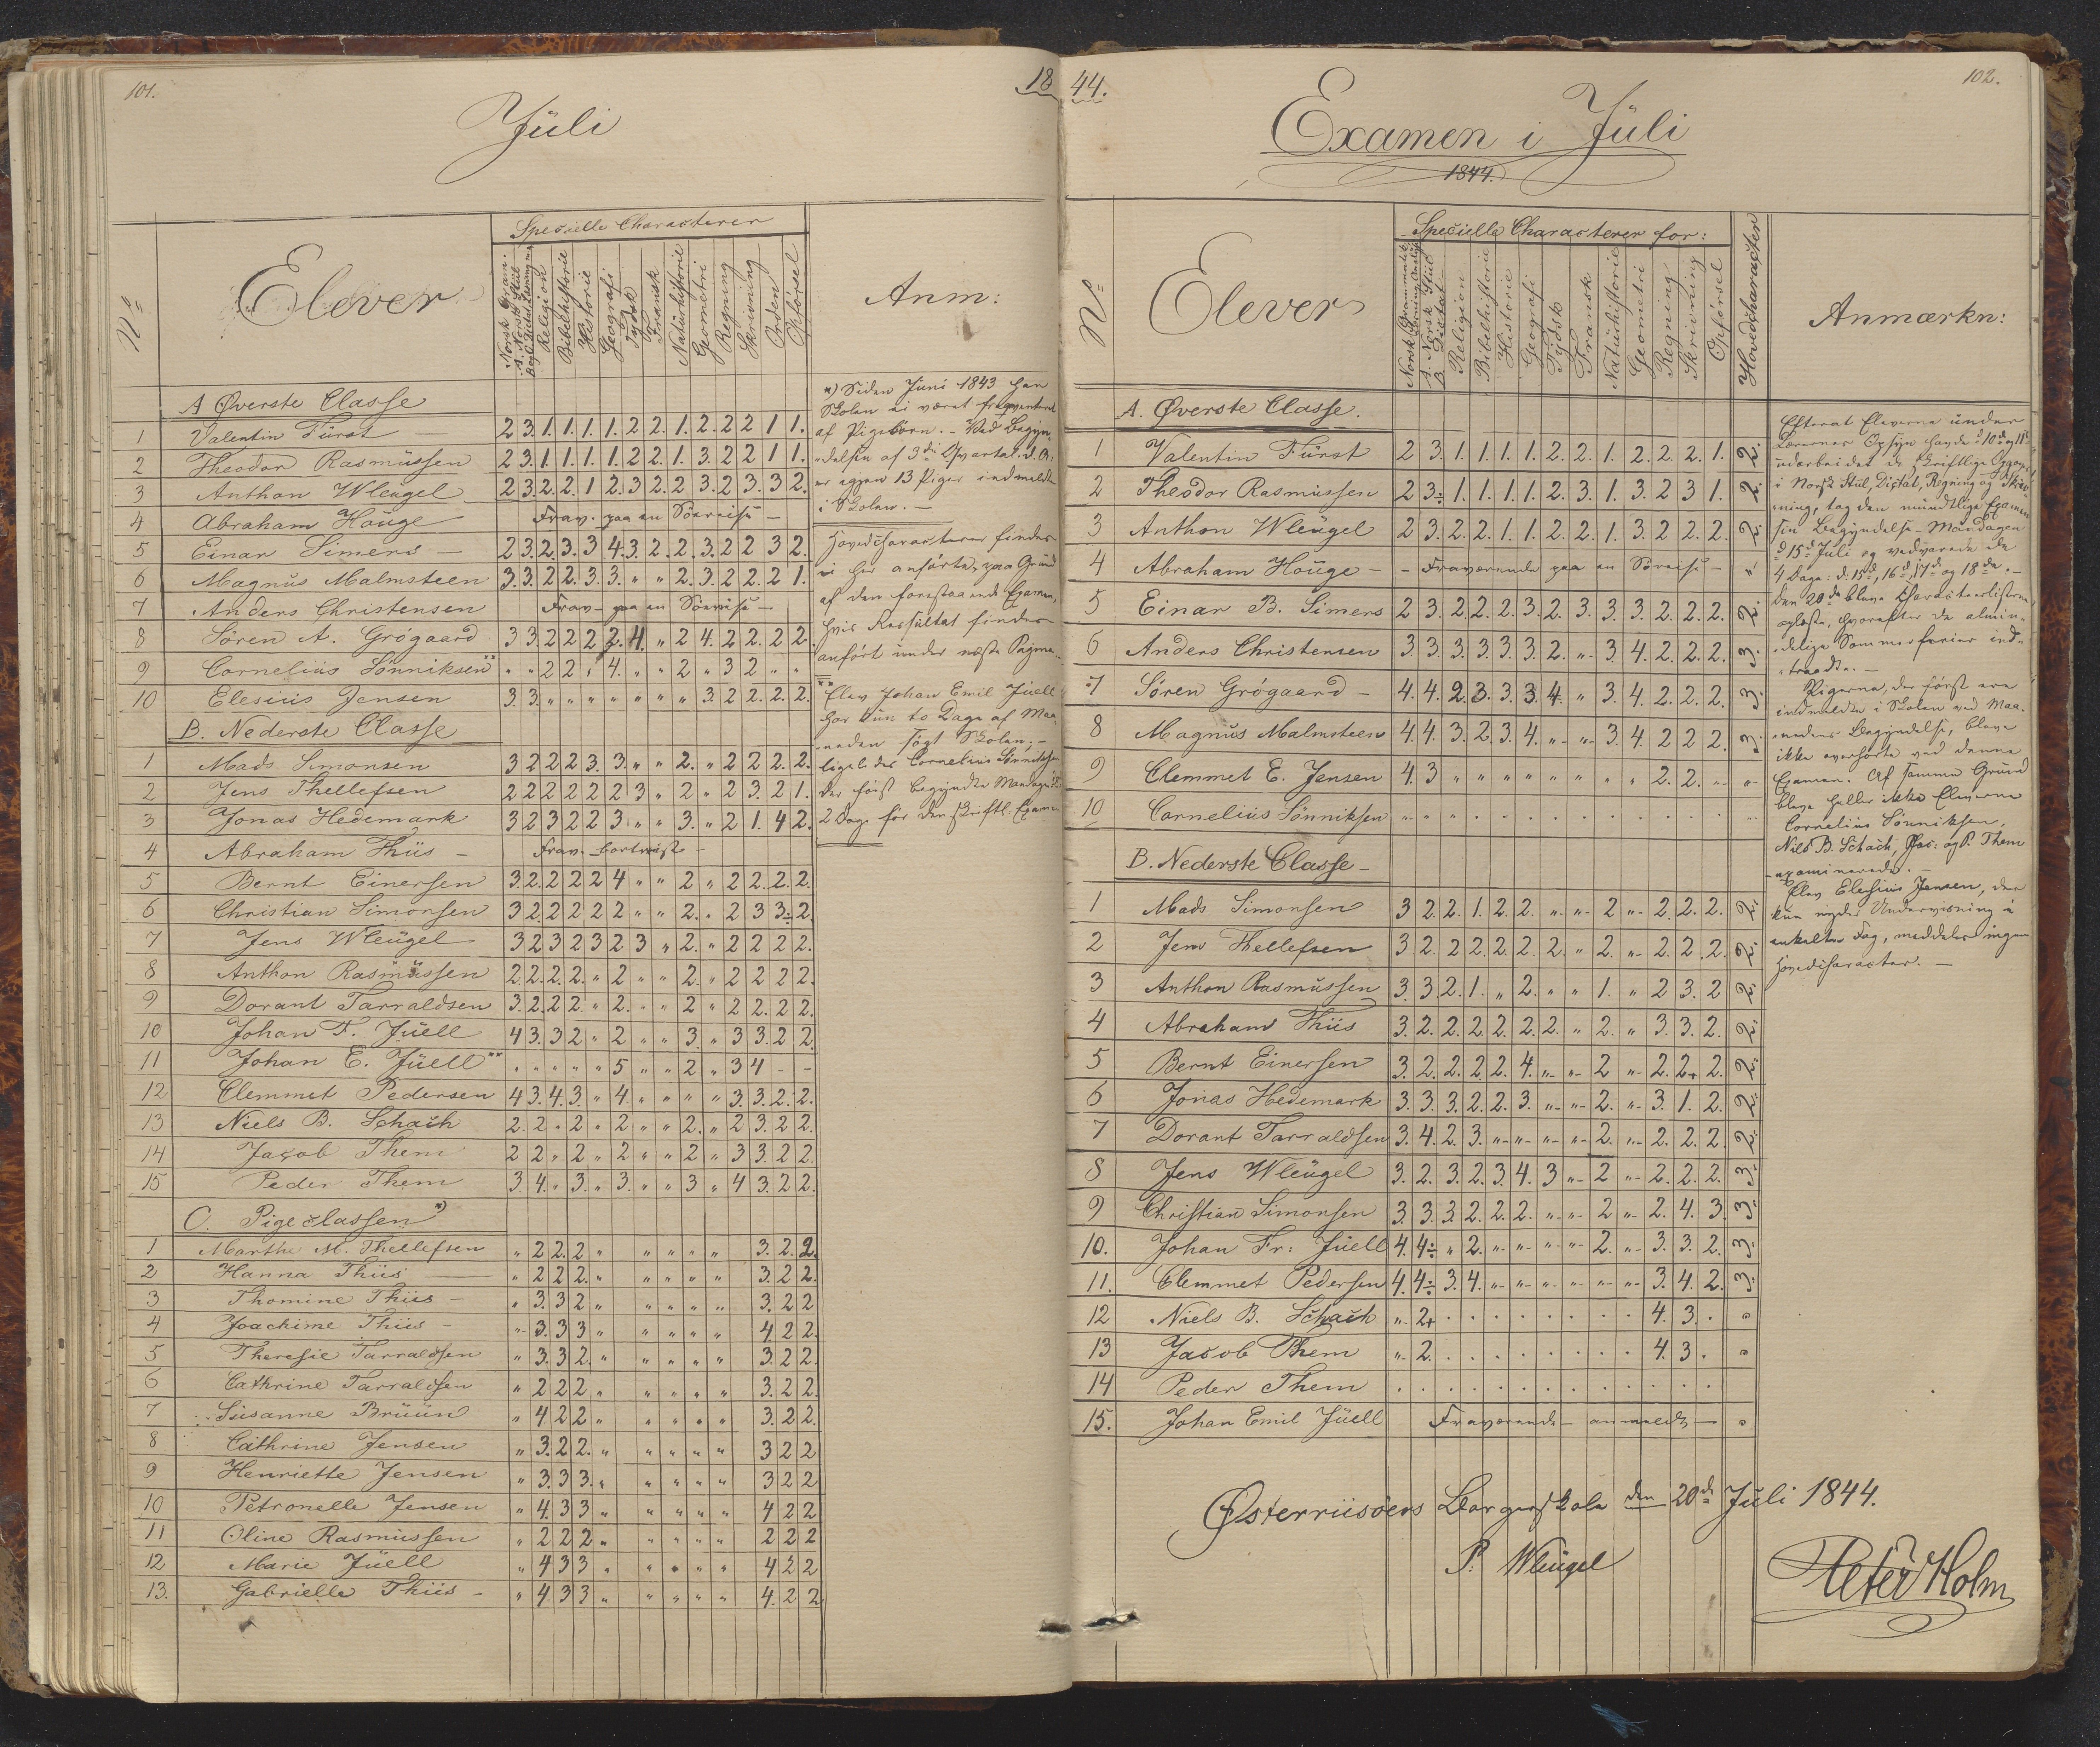 101.
18
Jüli
Elever
Specielle Characterer
Anm:
No
Norsk Gram.
A. Norsk Stiil
Religion
Bibelhistorie
Historie
Geografi
Tydsk
Fransk
Natürhistorie
Geometri
Regning
Skrivning
Orden
Opførsel
A Øverste Classe
1 Valentin Fürst 2 3. 1. 1. 1. 1. 2 2. 1. 2. 2 2 1 1.
2 Theodor Rasmüssen 2 3. 1. 1. 1. 1. 2 2. 1. 3. 2 2 1 1.
3 Anthon Wleügel 2 3. 2. 2. 1 2. 3 2. 2 3. 2 3. 3 2.
4 Abraham Houge Frav. paa en Söereise —
5 Einar Simers — 2 3. 2. 3. 3 4. 3. 2. 2. 3. 2 2 3 2.
6 Magnüs Malmsteen 3. 3. 2 2. 3. 3. " " 2. 3. 2 2. 2 1.
7 Anders Christensen Frav — paa en Söereise —
8 Søren A. Grógaard 3 3. 2 2 2 2. 4. " 2 4. 2 2. 2 2.
9 Cornelius Sønniksen ** " " 2 2 " 4. " " 2 " 3 2 " "
10 Elesius Jensen 3. 3. " " " " " " " 3. 2 2. 2. 2.
B. Nederste Classe
1 Mads Simonsen 3 2 2 2 3. 3. " " 2. " 2 2 2. 2.
2 Jens Thellefsen 2 2 2 2 2 2 3 " 2 " 2 3. 2 1.
3 Jonas Hedemark 3 2 3 2 2 3 " " 3. " 2 1. 4 2.
4 Abraham Thiis — Frav. bortreist —
5 Bernt Einersen 3. 2. 2 2 2 4 " " 2 " 2 2. 2. 2.
6 Christian Simonsen 3 2 2 2 2 2 " " 2. " 2 3 3÷ 2.
7 Jens Wleügel 3 2 3 2 3 2 3 " 2. " 2 2 2 2.
8 Anthon Rasmüssen 2. 2. 2. 2. " 2 " " 2. " 2 2 2 2.
9 Dorant Tarraldsen 3. 2. 2 2 " 2. " " 2 " 2 2. 2 2.
10 Johan F. Jüell 4 3. 3 2 " 2 " " 3. " 3 3. 2 2.
11 Johan E. Jüell ** " " " " " 5 " " 2 " 3 4 - -
12 Clemmet Pedersen 4 3. 4. 3. " 4. " " " " 3. 3. 2. 2.
13 Niels B. Schach 2. 2 " 2 " 2 " " 2. " 2 3. 2 2.
14 Jacob Them 2 2 " 2 " 2 " " 2 " 3 3. 2 2.
15 Peder Them 3. 4. " 3. " 3. " " 3 " 4 3. 2 2.
C. Pigeclassen *)
1 Marthe M. Thellefsen " 2 2. 2 " " " " " 3. 2. 2.
2 Hanna Thiis — " 2 2 2. " " " " " 3. 2 2.
3 Thomine Thiis — " 3. 3 2 " " " " " 3. 2 2
4 Joachime Thiis — " 3. 3 3 " " " " " 4 2 2.
5 Theresie Tarraldsen " 3. 3 2. " " " " " 3. 2 2.
6 Cathrine Tarraldsen " 2 2 2 " " " " " 3. 2 2.
7 Susanne Brüün " 4 2 2 " " " " " 3. 2 2.
8 Cathrine Jensen " 3. 2 2. " " " " " 3 2 2
9 Henriette Jensen " 3. 3 3. " " " " " 3 2 2
10 Petronelle Jensen " 4. 3 3 " " " " " 4 2 2
11 Oline Rasmüssen " 2 2 2 " " " " " 2 2 2
12 Marie Jüell " 4 3 3 " " " " " 4 2 2
13. Gabrielle Thiis — " 4 3 3 " " " " " 4. 2 2
*) Siden Juni 1843 har
Skolen ei været freqventeret
af Pigebörn. — Ved Begyn-
delsen af 3die Qvartal d. A.
er igjen 13 Piger indmeldte
i Skolen. —
Hovedcharacterer findes
ei her anförte, paa Grund
af den forestaaende Examen,
hvis Resultat findes
anfört under næste Pagina.
** Elev Johan Emil Jüell
har kun to Dage af Maa-
neden sögt Skolen; —
ligeledes Cornelius Sönniksen
der först begyndte Mandag
2 Dage för den skriftl. Examen
44.
102.
Examen i Jüli
1844.
No
Elever
Specielle Characterer for:
Hovedcharacter
Anmærkn:
Norsk Grammatik
A. Norsk Stiil
B. Dictat
Religion
Bibelhistorie
Historie
Geografi
Tydsk
Fransk
Natürhistorie
Geometri
Regning
Skrivning
Opførsel
A. Øverste Classe.
1 Valentin Fürst 2 3. 1. 1. 1. 1. 2. 2. 1. 2. 2. 2. 1. 2.
2 Theodor Rasmüssen 2 3÷ 1. 1. 1. 1. 2. 3. 1. 3. 2 3 1. 2.
3 Anthon Wleügel 2 3. 2. 2. 1. 1. 2. 2. 1. 3. 2 2. 2. 2.
4 Abraham Houge — — Fraværende paa en Söreise — "
5 Einar B. Simers 2 3. 2. 2. 2. 3. 2. 3. 3. 3. 2. 2. 2. 2.
6 Anders Christensen 3 3. 3. 3. 3. 3. 2. " 3. 4. 2. 2. 2. 3.
7 Søren Grógaard — 4. 4. 2 3. 3. 3. 4. " 3. 4. 2. 2. 2. 3.
8 Magnüs Malmsteen 4. 4. 3. 2. 3. 4. " " 3. 4. 2 2 2. 3.
9 Clemmet E. Jensen 4. 3 " " " " " " " " 2. 2. " "
10 Cornelius Sönniksen
B. Nederste Classe —
1 Mads Simonsen 3 2. 2. 1. 2. 2. " " 2 " 2. 2. 2. 2.
2 Jens Thellefsen 3 2. 2 2. 2. 2. 2. " 2. " 2. 2. 2. 2.
3 Anthon Rasmüssen 3. 3 2. 1. " 2. " " 1. " 2 3. 2 2.
4 Abraham Thiis 3. 2. 2. 2. 2. 2. 2. " 2. " 3. 3. 2. 2.
5 Bernt Einersen 3. 2. 2. 2. 2. 4. " " 2 " 2. 2+ 2. 2.
6 Jonas Hedemark 3. 3. 3. 2. 2. 3. " " 2. " 3. 1. 2. 2.
7 Dorant Tarraldsen 3. 4. 2. 3. " " " " 2. " 2. 2. 2. 2.
8 Jens Wleügel 3. 2. 3. 2. 3. 4. 3 " 2 " 2. 2. 2. 3.
9 Christian Simonsen 3. 3. 3. 2. 2. 2. " " 2 " 2. 4. 3. 3.
10. Johan Fr: Jüell 4. 4÷ " 2. " " " " 2. " 3. 3. 2. 3.
11. Clemmet Pedersen 4. 4÷ 3. 4. " " " " " " 3. 4. 2. 3.
12 Niels B. Schach " 2+ 4. 3.
13 Jacob Them " 2. 4. 3.
14 Peder Them
15. Johan Emil Jüell Fraværende — anmeldt —
Efterat Eleverne under
Lærernes Opsyn havde d. 10de og 11te
udarbeidet de skriftlige Opgaver
i Norsk Stiil, Dictat, Regning og Skriv-
ning, tog den mundtlige Examen
sin Begyndelse Mandagen
d. 15de Juli og vedvarede de
4 Dage: d. 15de, 16de, 17de og 18de. —
Den 20de bleve Characteerlisterne
oplæste, hvorefter de almin-
delige Sommerferier ind-
traadte. —
Pigerne, der först ere
indmeldte i Skolen ved Maa-
nedens Begyndelse, bleve
ikke overhörte ved denne
Examen. Af samme Grund
bleve heller ikke Eleverne
Cornelius Sönniksen,
Niels B. Schach, Jac: og P. Them
examinerede. —
Elev Elesius Jensen, der
kun nyder Underviisning i
enkelte Fag, meddeles ingen
Hovedcharacter. —
Østerriisöers Borgerskole den 20de Juli 1844.
P. Wleügel
Peter Holm